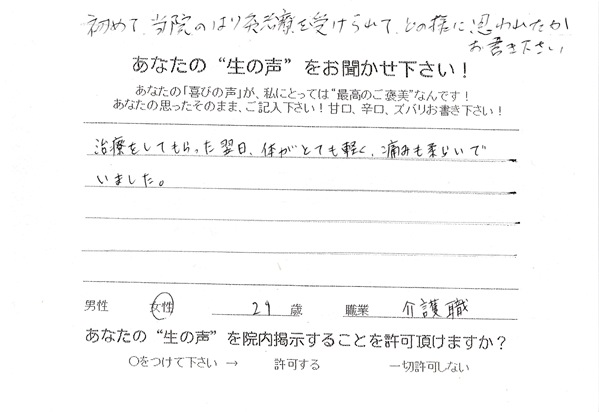 初めて、当院のはり灸治療を受けられて、どの様に思われたか
お書き下さい
あなたの“生の声”をお聞かせ下さい！
あなたの「喜びの声」が、私にとっては“最高のご褒美”なんです！
あなたの思ったそのまま、ご記入下さい！甘口、辛口、ズバリお書き下さい！
治療をしてもらった翌日、体がとても軽く、痛みも柔らいで
いました。
男性 女性 29 歳 職業 介護職
あなたの“生の声”を院内掲示することを許可頂けますか？
〇をつけて下さい → 許可する 一切許可しない